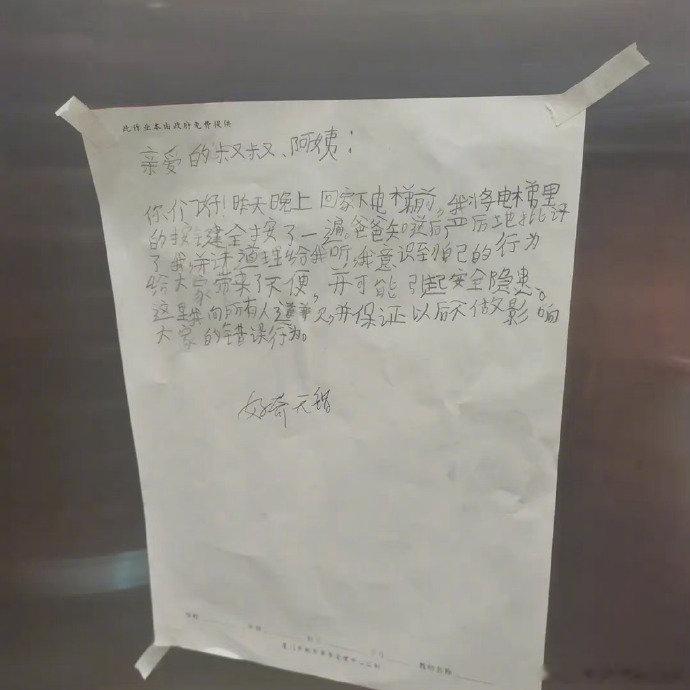 此作业本由政府免费提供
亲爱的叔叔、阿姨：
你们好！昨天晚上回家下电梯前，我将电梯里
的按键全按了一遍。爸爸知道后严厉地批评
了我并讲道理给我听，我意识到自己的行为
给大家带来了不便，并可能引起安全隐患。
这里要向所有人道歉，并保证以后不做影响
大家的错误行为。
教师签名